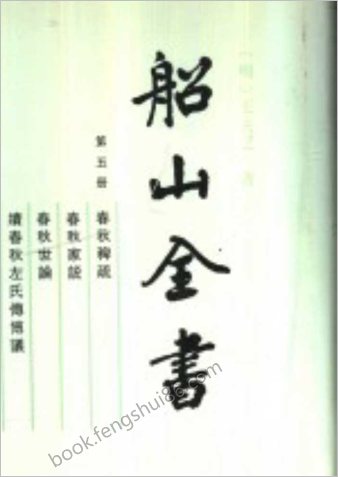 船山全書
第五册
春秋稗疏
春秋家說
春秋世論
續春秋左氏傳博議
book.fengshui86.com